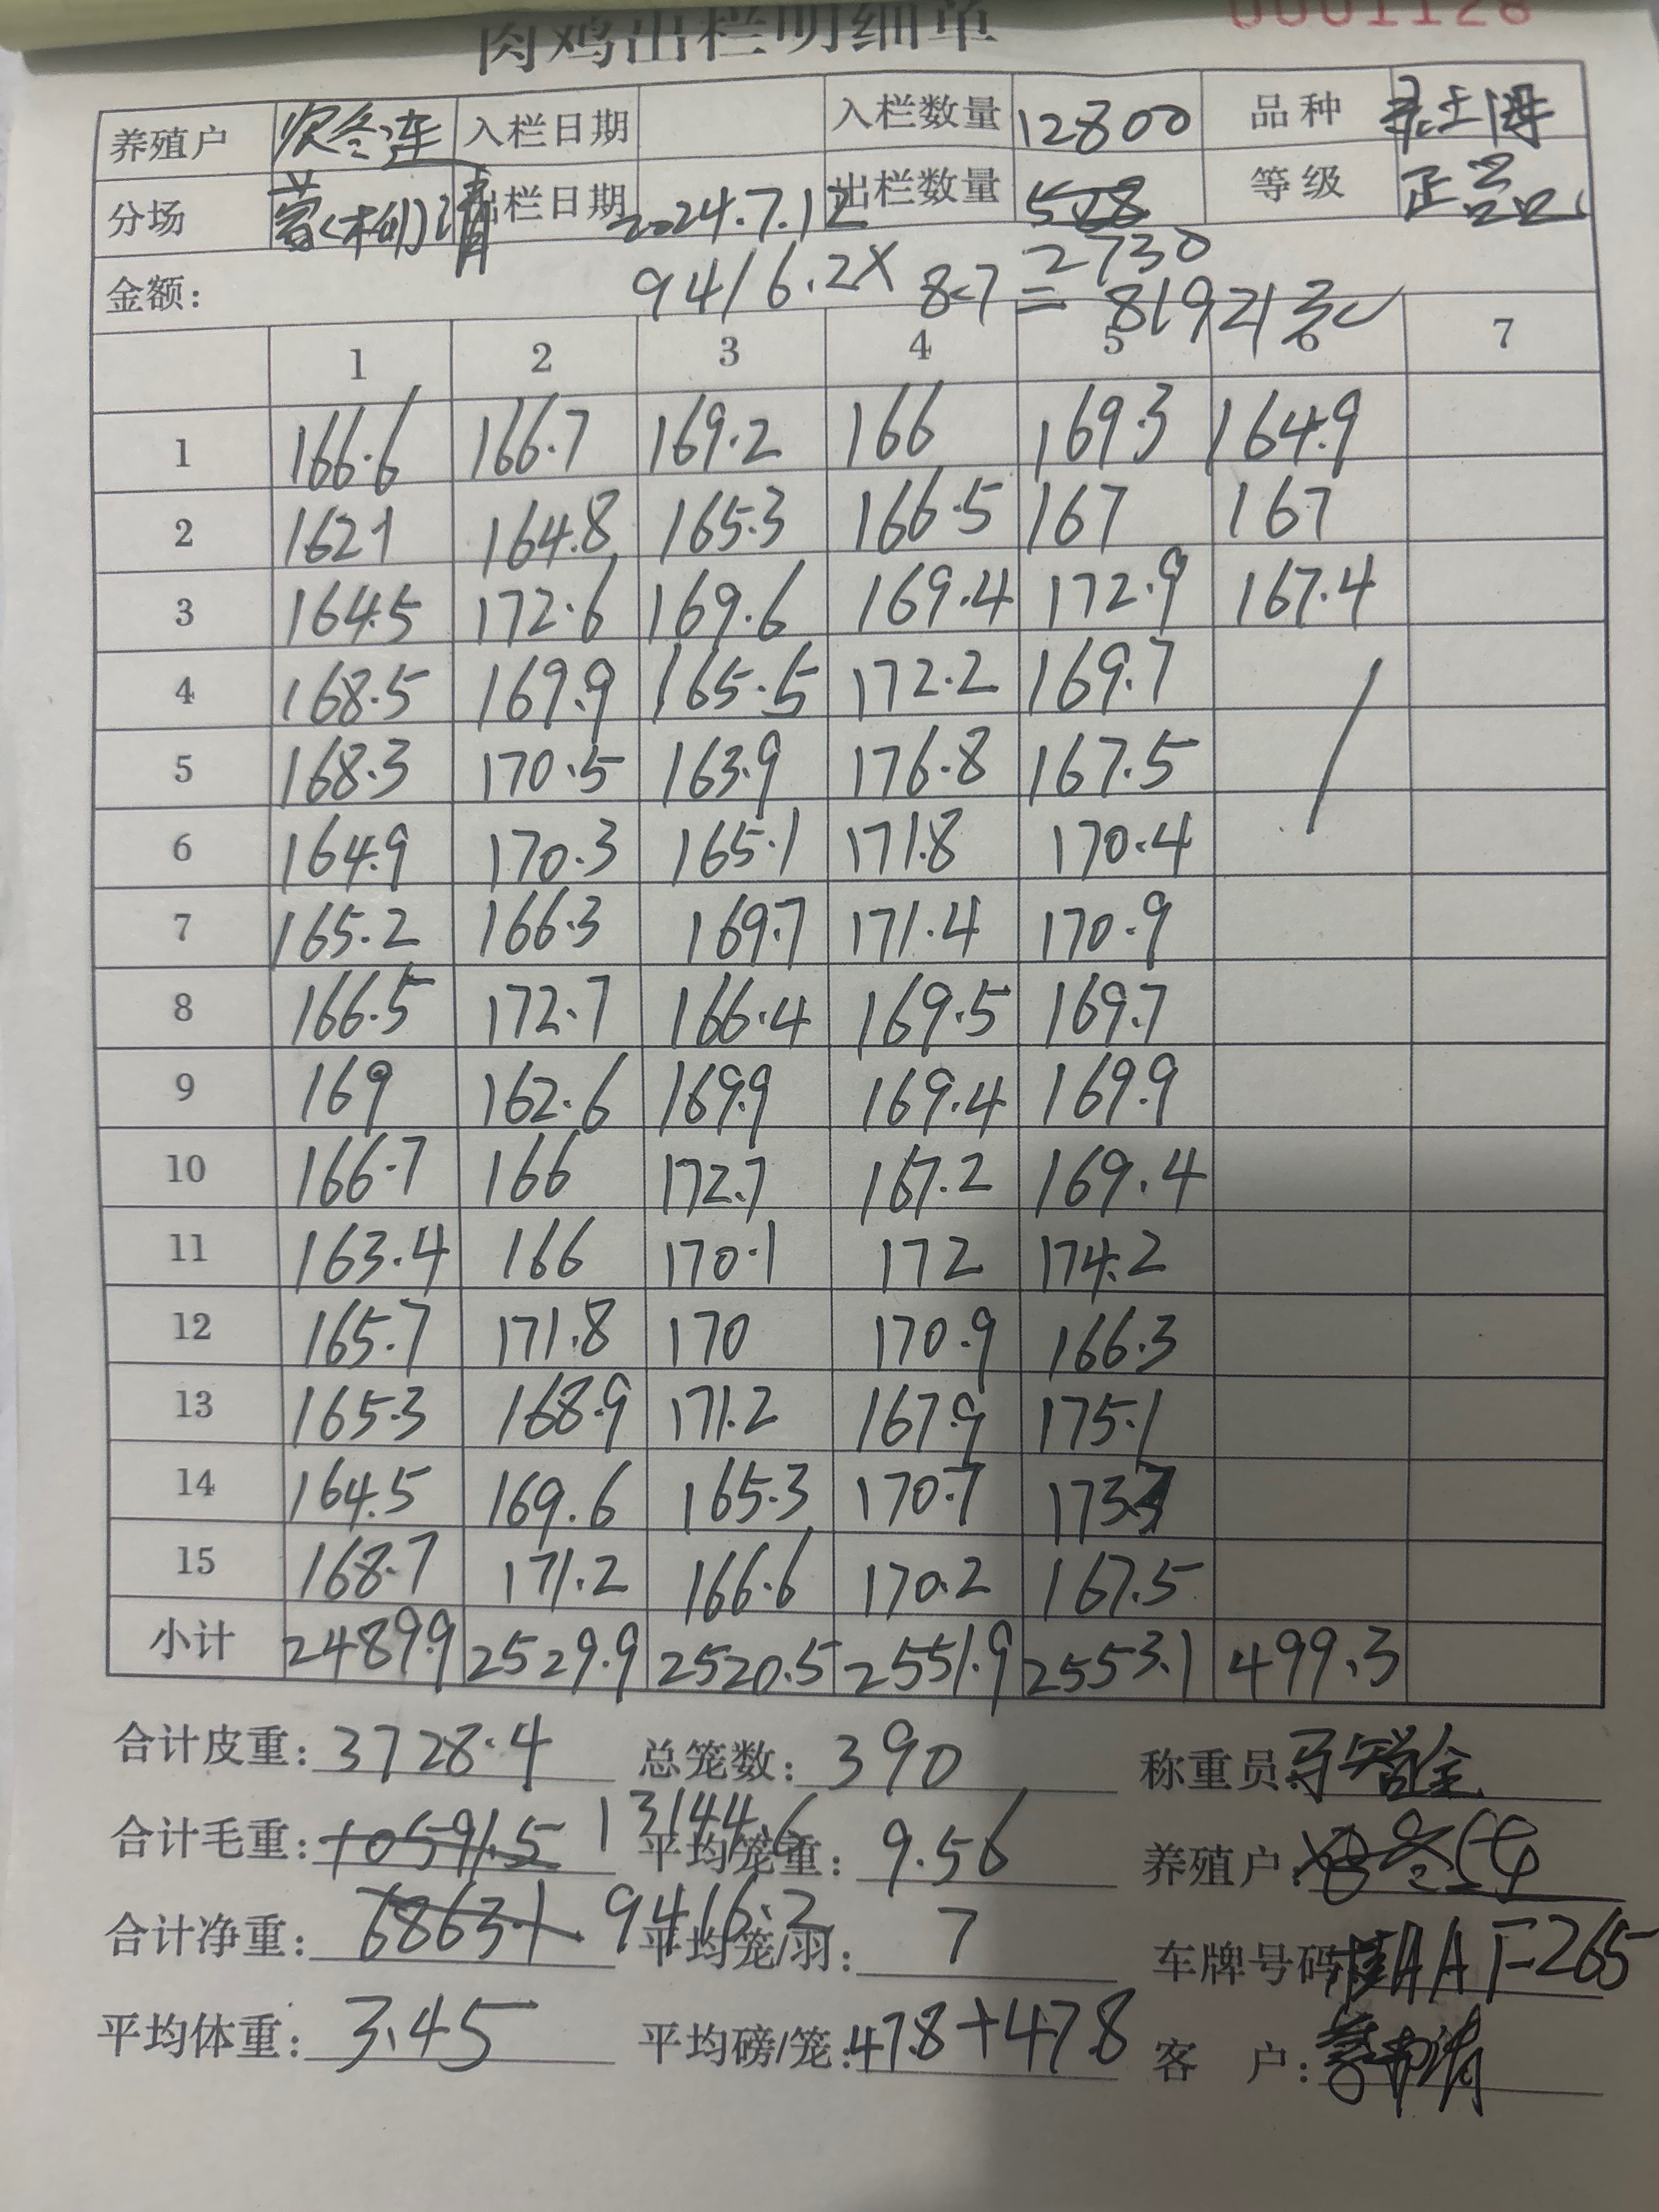 肉鸡出栏明细单 0001128
养殖户 入栏日期 入栏数量 12800 品种
分场 出栏日期 2024.7.12 出栏数量 528 等级 正品
2730
金额: 9416.2X 8.7 = 81921元
1 2 3 4 5 6 7
1 166.6 166.7 169.2 166 169.3 164.9
2 162.1 164.8 165.3 166.5 167 167
3 164.5 172.6 169.6 169.4 172.9 167.4
4 168.5 169.9 165.5 172.2 169.7
5 168.3 170.5 163.9 176.8 167.5
6 164.9 170.3 165.1 171.8 170.4
7 165.2 166.3 169.7 171.4 170.9
8 166.5 172.7 166.4 169.5 169.7
9 169 162.6 169.9 169.4 169.9
10 166.7 166 172.7 167.2 169.4
11 163.4 166 170.1 172 174.2
12 165.7 171.8 170 170.9 166.3
13 165.3 168.9 171.2 167.9 175.1
14 164.5 169.6 165.3 170.7 173.3
15 168.7 171.2 166.6 170.2 167.5
小计 2489.9 2529.9 2520.5 2551.9 2553.1 499.3
合计皮重: 3728.4 总笼数: 390 称重员
合计毛重: 10591.5 13144.6 平均笼重: 9.56 养殖户:
合计净重: 6863.1 9416.2 平均笼/羽: 7 车牌号码 桂AAF265
平均体重: 3.45 平均磅/笼: 478+478 客 户: